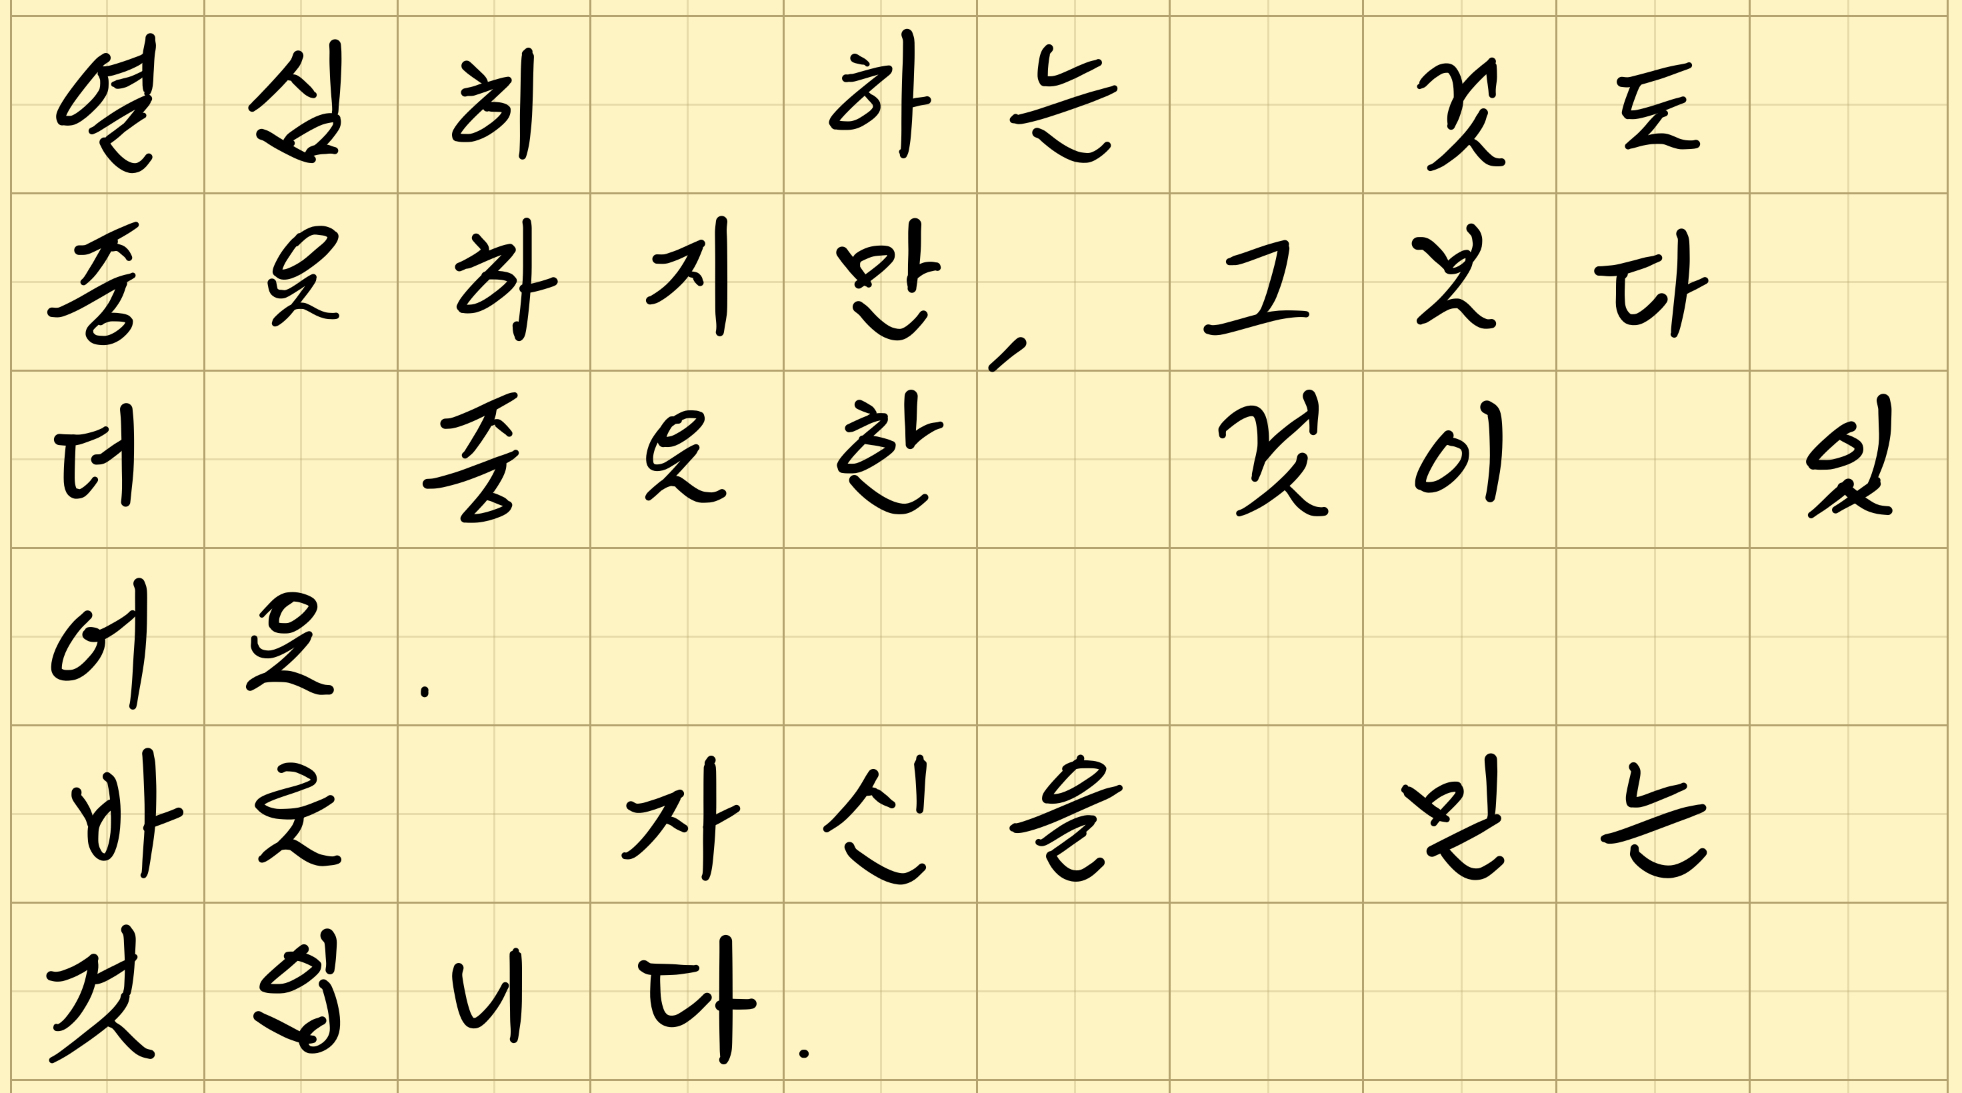 열심히 하는 것도
중요하지만, 그보다
더 중요한 것이 있
어요.
바로 자신을 믿는
것입니다.